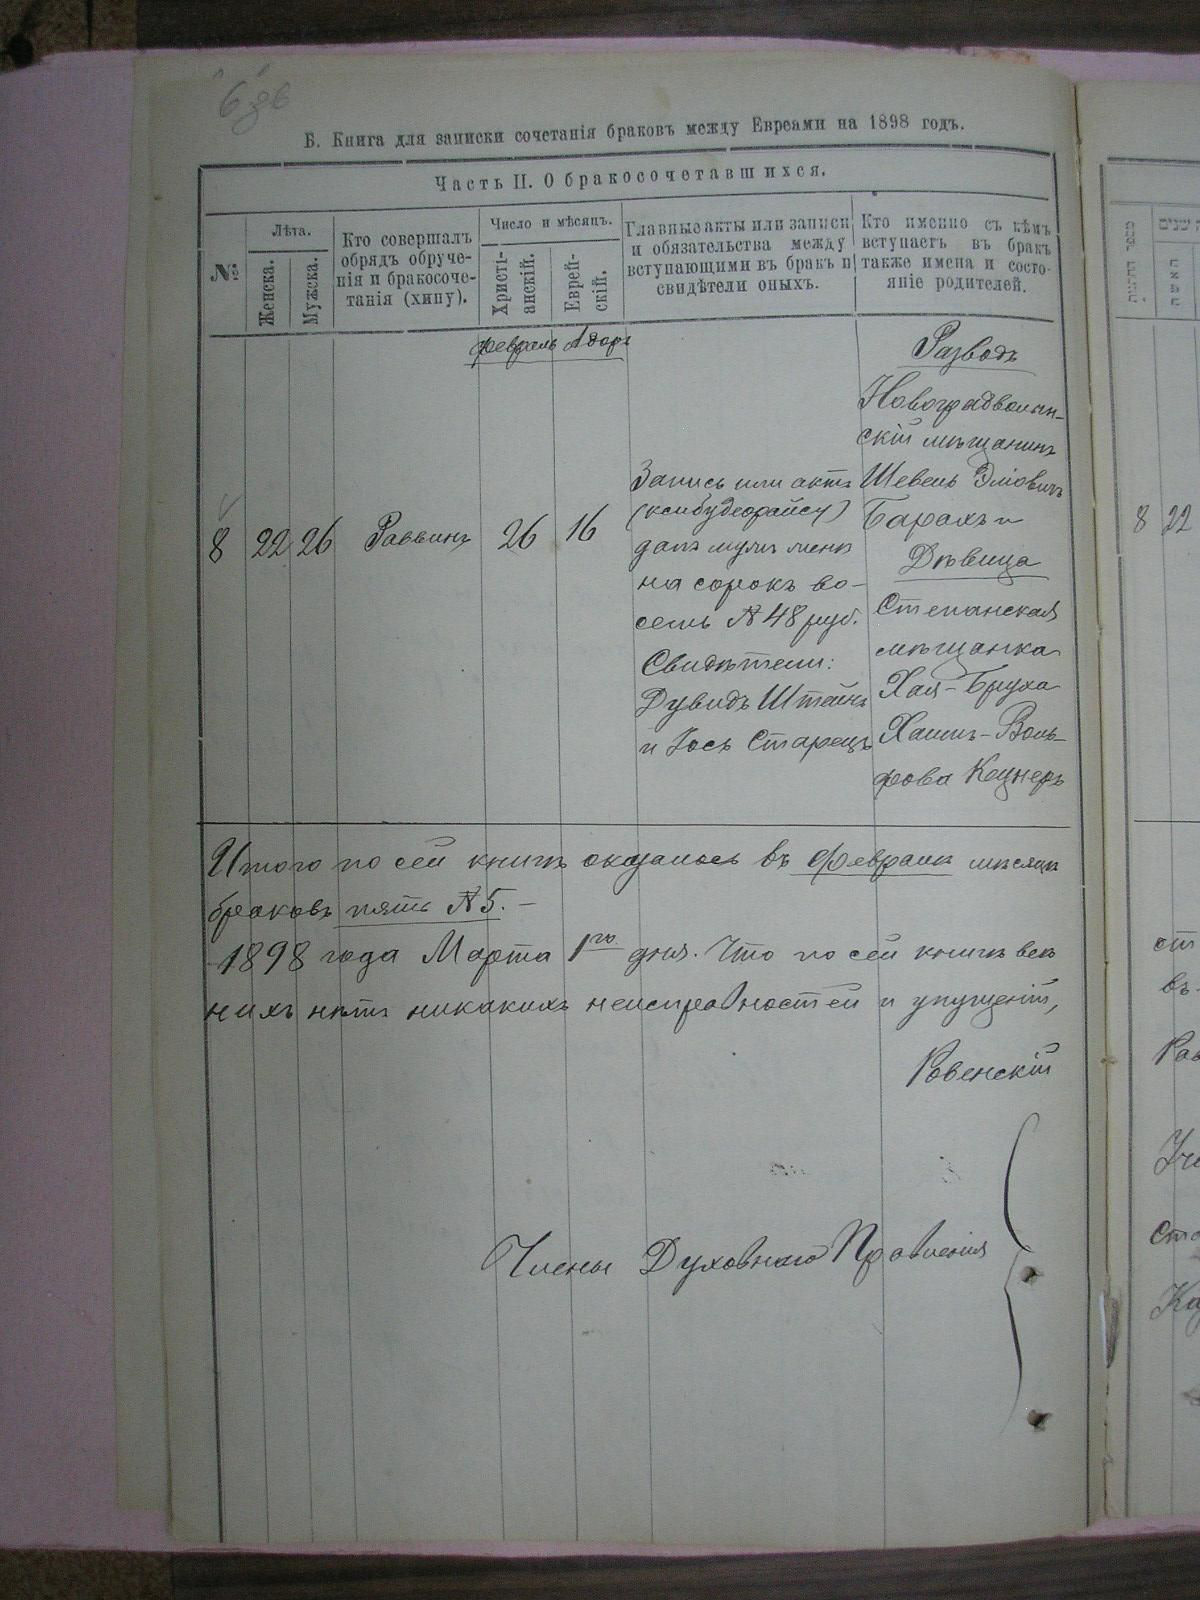 6 зв
Б. Книга для записки сочетанія браковъ между Евреами на 1898 годъ.
Часть II. О бракосочетавшихся.
№
Лѣта.
Женска.
Мужска.
Кто совершалъ
обрядъ обруче-
нія и бракосоче-
танія (хипу).
Число и мѣсяцъ.
Христі-
анскій.
Еврей-
скій.
Главные акты или записи
и обязательства между
вступающими въ бракъ и
свидѣтели оныхъ.
Кто именно съ кѣмъ
вступаетъ въ бракъ
также имена и состо-
яніе родителей.
февраль Адоръ
8
22
26
Раввинъ
26
16
Запись или актъ
данъ мужъ женѣ
на сорокъ во-
семь № 48 руб.
Свидѣтели:
Дувидъ Штейнъ
и Іось Старецъ
Разводъ
Новоградволын-
скій мѣщанинъ
Шевель
Барахъ и
Дѣвица
Степанская
мѣщанка
Хая-Бруха
Хаимъ-Воль-
фова Кацнеръ
Итого по сей книгѣ оказалось въ февралѣ мѣсяцѣ
браковъ пять № 5. —
1898 года Марта 1го дня. Что по сей книгѣ вѣ
нихъ нѣтъ никакихъ неисправностей и упущеній,
Ровенскій
Члены Духовнаго Правленія
8
22
ст
въ
Рав
Уче
Ста
Ка